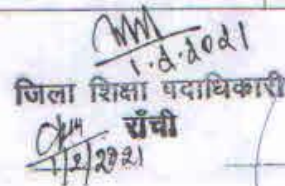 1.2.2021
जिला शिक्षा पदाधिकारी
राँची
1/2/2021